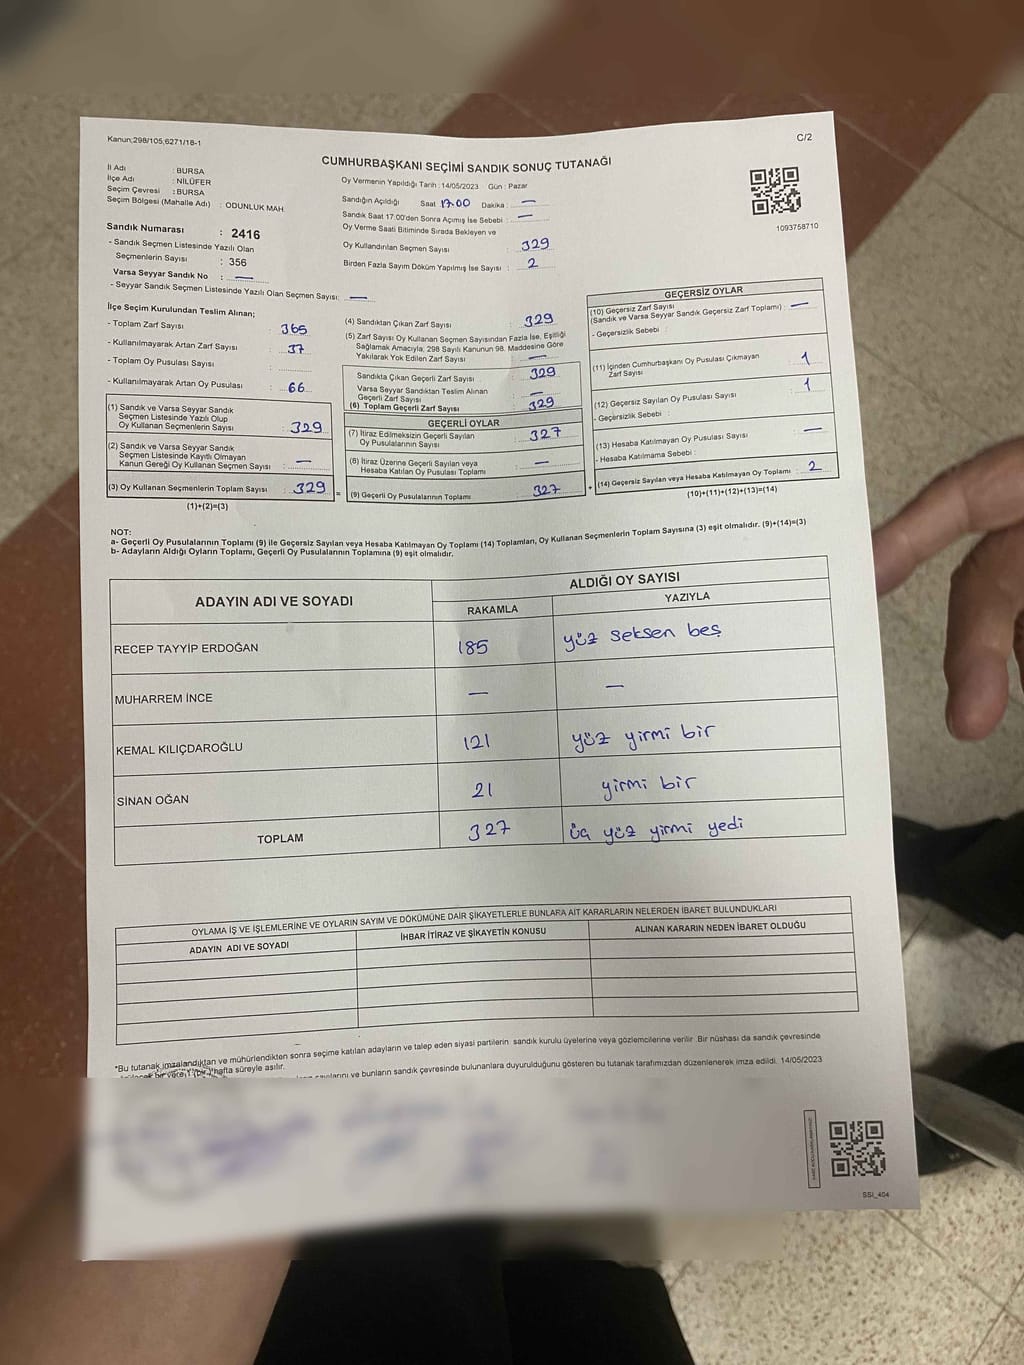 Kanun;298/105,6271/18-1
C/2
CUMHURBAŞKANI SEÇİMİ SANDIK SONUÇ TUTANAĞI
İl Adı : BURSA
İlçe Adı : NİLÜFER
Seçim Çevresi : BURSA
Seçim Bölgesi (Mahalle Adı) : ODUNLUK MAH.
Sandık Numarası : 2416
- Sandık Seçmen Listesinde Yazılı Olan
Seçmenlerin Sayısı : 356
Varsa Seyyar Sandık No : —
- Seyyar Sandık Seçmen Listesinde Yazılı Olan Seçmen Sayısı: —
Oy Vermenin Yapıldığı Tarih : 14/05/2023 Gün : Pazar
Sandığın Açıldığı Saat 17:00 Dakika : —
Sandık Saat 17:00'den Sonra Açımış İse Sebebi : —
Oy Verme Saati Bitiminde Sırada Bekleyen ve
Oy Kullandırılan Seçmen Sayısı : 329
Birden Fazla Sayım Döküm Yapılmış İse Sayısı : 2
1093758710
İlçe Seçim Kurulundan Teslim Alınan;
- Toplam Zarf Sayısı : 365
- Kullanılmayarak Artan Zarf Sayısı : 37
- Toplam Oy Pusulası Sayısı :
- Kullanılmayarak Artan Oy Pusulası : 66
(1) Sandık ve Varsa Seyyar Sandık
Seçmen Listesinde Yazılı Olup
Oy Kullanan Seçmenlerin Sayısı : 329
(2) Sandık ve Varsa Seyyar Sandık
Seçmen Listesinde Kayıtlı Olmayan
Kanun Gereği Oy Kullanan Seçmen Sayısı : —
(3) Oy Kullanan Seçmenlerin Toplam Sayısı : 329
(1)+(2)=(3)
(4) Sandıktan Çıkan Zarf Sayısı : 329
(5) Zarf Sayısı Oy Kullanan Seçmen Sayısından Fazla İse, Eşitliği
Sağlamak Amacıyla, 298 Sayılı Kanunun 98. Maddesine Göre
Yakılarak Yok Edilen Zarf Sayısı : —
Sandıkta Çıkan Geçerli Zarf Sayısı : 329
Varsa Seyyar Sandıktan Teslim Alınan
Geçerli Zarf Sayısı : —
(6) Toplam Geçerli Zarf Sayısı : 329
GEÇERLİ OYLAR
(7) İtiraz Edilmeksizin Geçerli Sayılan
Oy Pusulalarının Sayısı : 327
(8) İtiraz Üzerine Geçerli Sayılan veya
Hesaba Katılan Oy Pusulası Toplamı : —
= (9) Geçerli Oy Pusulalarının Toplamı : 327
GEÇERSİZ OYLAR
(10) Geçersiz Zarf Sayısı
(Sandık ve Varsa Seyyar Sandık Geçersiz Zarf Toplamı) : —
- Geçersizlik Sebebi :
(11) İçinden Cumhurbaşkanı Oy Pusulası Çıkmayan
Zarf Sayısı : 1
(12) Geçersiz Sayılan Oy Pusulası Sayısı : 1
- Geçersizlik Sebebi :
(13) Hesaba Katılmayan Oy Pusulası Sayısı : —
- Hesaba Katılmama Sebebi :
+ (14) Geçersiz Sayılan veya Hesaba Katılmayan Oy Toplamı : 2
(10)+(11)+(12)+(13)=(14)
NOT:
a- Geçerli Oy Pusulalarının Toplamı (9) ile Geçersiz Sayılan veya Hesaba Katılmayan Oy Toplamı (14) Toplamları, Oy Kullanan Seçmenlerin Toplam Sayısına (3) eşit olmalıdır. (9)+(14)=(3)
b- Adayların Aldığı Oyların Toplamı, Geçerli Oy Pusulalarının Toplamına (9) eşit olmalıdır.
ADAYIN ADI VE SOYADI
ALDIĞI OY SAYISI
RAKAMLA YAZIYLA
RECEP TAYYİP ERDOĞAN 185 yüz seksen beş
MUHARREM İNCE — —
KEMAL KILIÇDAROĞLU 121 yüz yirmi bir
SİNAN OĞAN 21 yirmi bir
TOPLAM 327 üç yüz yirmi yedi
OYLAMA İŞ VE İŞLEMLERİNE VE OYLARIN SAYIM VE DÖKÜMÜNE DAİR ŞİKAYETLERLE BUNLARA AİT KARARLARIN NELERDEN İBARET BULUNDUKLARI
ADAYIN ADI VE SOYADI İHBAR İTİRAZ VE ŞİKAYETİN KONUSU ALINAN KARARIN NEDEN İBARET OLDUĞU
*Bu tutanak imzalandıktan ve mühürlendikten sonra seçime katılan adayların ve talep eden siyasi partilerin sandık kurulu üyelerine veya gözlemcilerine verilir. Bir nüshası da sandık çevresinde
bir yere 1 (bir) hafta süreyle asılır.
ve bunların sandık çevresinde bulunanlara duyurulduğunu gösteren bu tutanak tarafımızdan düzenlenerek imza edildi. 14/05/2023
SSI_404